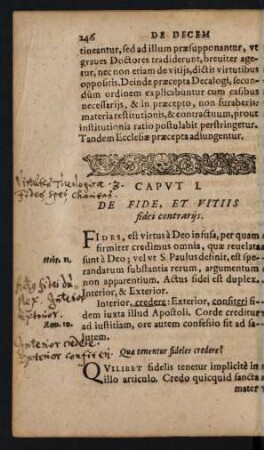 246 DE DECEM
tineantur, sed ad illum præsupponantur, vt
graues Doctores tradiderunt, breuiter age-
tur, nec non etiam de vitijs, dictis virtutibus
oppositis. Deinde præcepta Decalogi, secun-
dùm ordinem explicabuntur cum casibus
necessarijs, & in præcepto, non furaberis:
materia restitutionis, & contractuum, prout
institutionis ratio postulabit perstringetur.
Tandem Ecclesiæ præcepta adiungentur.
Virtutes Theologicæ 3.
Fides Spes Charitas.
CAPVT I.
DE FIDE, ET VITIIS
fidei contrarijs.
FIDES, est virtus à Deo infusa, per quam
firmiter credimus omnia, quæ reuelata
sunt à Deo; vel vt S. Paulus definit, est spe-
Heb. 11.
randarum substantia rerum, argumentum
non apparentium. Actus fidei est duplex.
Interior, & Exterior.
Actus fidei du-
plex. Interior
Exterior.
Interior, credere: Exterior, confiteri fi-
dem iuxta illud Apostoli. Corde creditur
Rom. 10.
ad iustitiam, ore autem confessio fit ad sa-
lutem.
Interior credere.
Exterior confiteri.
Qua tenentur fideles credere?
QVILIBET fidelis tenetur implicitè in
illo articulo. Credo quicquid sancta
mater